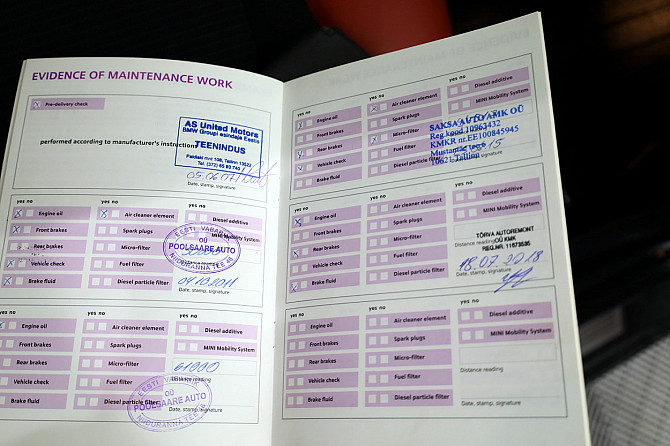 EVIDENCE OF MAINTENANCE WORK
Pre-delivery check
performed according to manufacturer's instructions
AS United Motors
BMW Groupi esindaja Eestis
TEENINDUS
Paldiski mnt 108, Tallinn 13522
Tel. (372) 65 63 740
05.06.07
Date, stamp, signature
yes no
yes no
yes no
Engine oil
Air cleaner element
Diesel additive
Front brakes
Spark plugs
MINI Mobility System
Rear brakes
Micro-filter
Vehicle check
Fuel filter
Brake fluid
Diesel particle filter
EESTI VABARIIK
OÜ
POOLSAARE AUTO
NIIDURANNA TEE 46
04.10.2011
Date, stamp, signature
yes no
yes no
Engine oil
Air cleaner element
Diesel additive
Front brakes
Spark plugs
MINI Mobility System
Rear brakes
Micro-filter
61000
Distance reading
Vehicle check
Fuel filter
Brake fluid
Diesel particle filter
EESTI VABARIIK
OÜ
POOLSAARE AUTO
NIIDURANNA TEE 46
Date, stamp, signature
yes no
yes no
yes no
Engine oil
Air cleaner element
Diesel additive
Front brakes
Spark plugs
MINI Mobility System
Rear brakes
Micro-filter
Vehicle check
Fuel filter
Brake fluid
Diesel particle filter
SAKSA AUTO AMK OÜ
Reg.kood 10963432
KMKR nr.EE100845945
Mustamäe tee 6
10621 Tallinn
yes no
yes no
yes no
Engine oil
Air cleaner element
Diesel additive
Front brakes
Spark plugs
MINI Mobility System
Rear brakes
Micro-filter
Distance reading
Vehicle check
Fuel filter
Brake fluid
Diesel particle filter
TÕRVA AUTOREMONT
OÜ KMK
REG.NR. 11673535
18.07.2018
Date, stamp, signature
yes no
yes no
yes no
Engine oil
Air cleaner element
Diesel additive
Front brakes
Spark plugs
MINI Mobility System
Rear brakes
Micro-filter
Distance reading
Vehicle check
Fuel filter
Brake fluid
Diesel particle filter
Date, stamp, signature